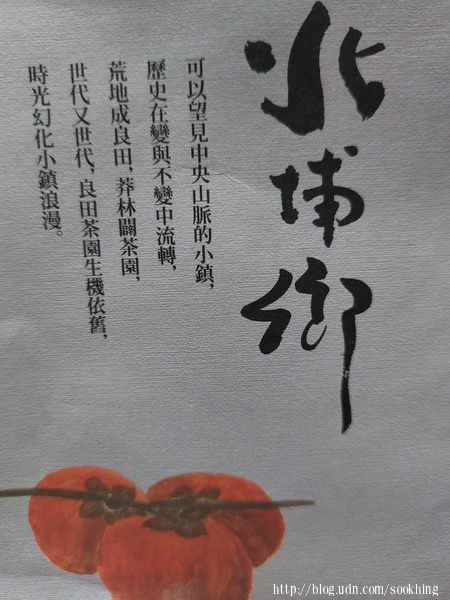 北埔鄉
可以望見中央山脈的小鎮，
歷史在變與不變中流轉，
荒地成良田，莽林闢茶園，
世代又世代，良田茶園生機依舊，
時光幻化小鎮浪漫。
http://blog.udn.com/sookhing